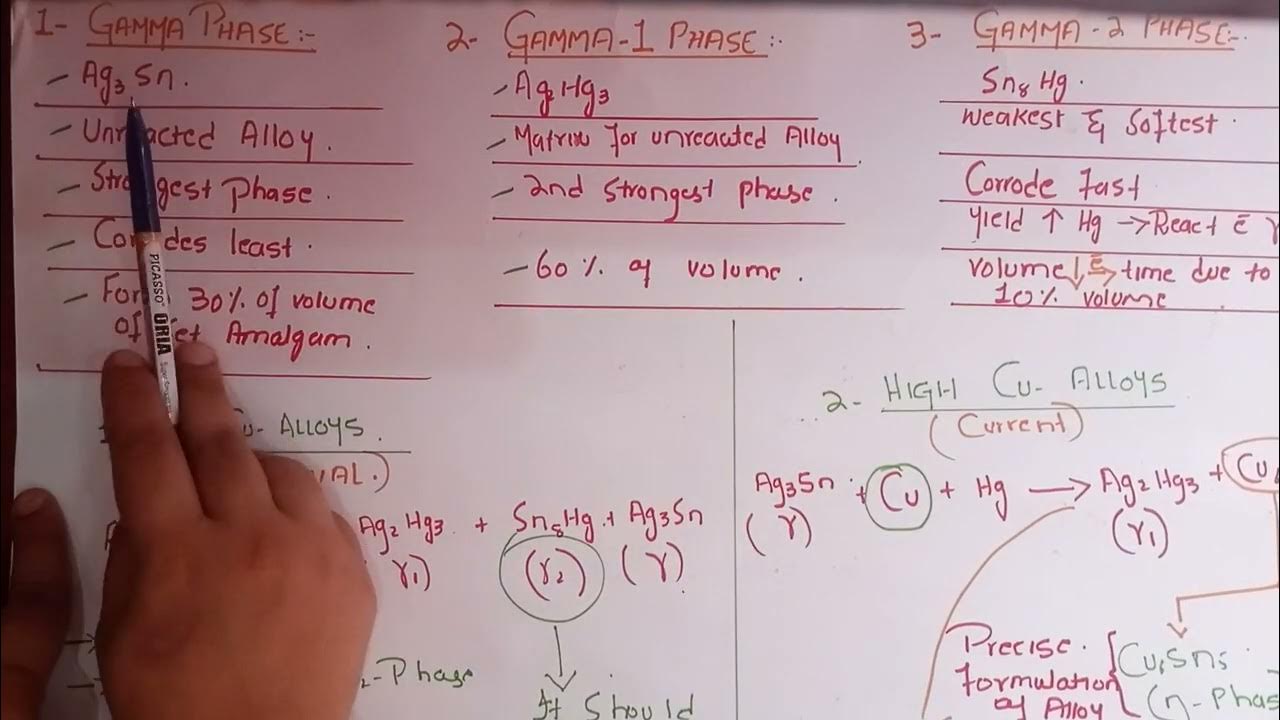 1- GAMMA PHASE:-
- Ag3 Sn.
Alloy.
Phase.
least.
30% of volume
Amalgam.
2- GAMMA-1 PHASE:-
- Ag2Hg3
- Matrix for unreacted Alloy
- 2nd strongest phase.
- 60% of volume.
3- GAMMA-2 PHASE:-
Sn8 Hg.
weakest & Softest.
Corrode fast
yield ↑ Hg → React c̄ γ
volume ↓ c̄ time due to
10% volume
PICASSO
DRIA
ALLOYS.
Ag2 Hg3 + Sn8Hg + Ag3Sn
γ1) (γ2) (γ)
-Phase
It Should
2- HIGH Cu- ALLOYS
(Current)
Ag3Sn + Cu + Hg → Ag2Hg3 + Cu
(γ) (γ1)
Precise.
formulation
of Alloy
Cu6Sn5
(η-Phas